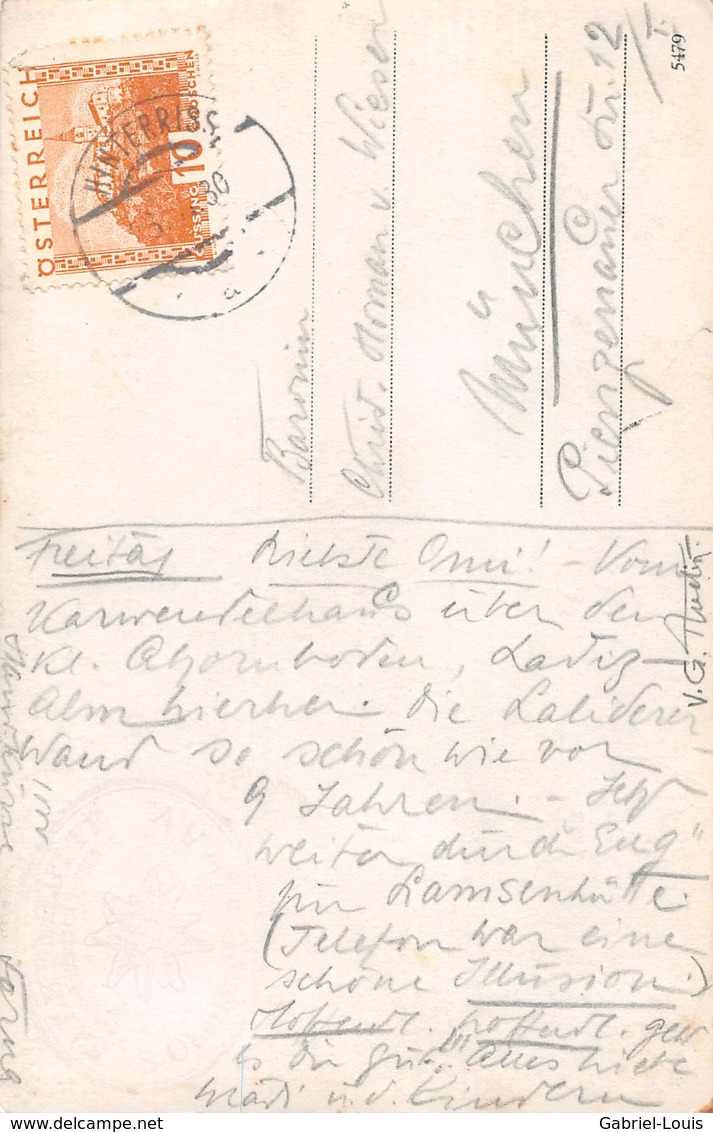 ÖSTERREICH
10 GROSCHEN
HINTERRISS
a
5479
I.
Baronin
Christ. Roman v. Wieser
München
Pienzenauer Str. 12
Freitag Liebste Omi! – Vom
Karwendelhaus über den
Kl. Ahornboden, Ladiz-
Alm hierher. Die Laliderer
Wand so schön wie vor
9 Jahren. –
weiter durch "Eng"
zur Lamsenhütte.
(Telefon war eine
schöne Illusion.)
Hoffentl. hoffentl. geht
es dir gut!!! Alles Liebe
u. d. Kindern
V. G.
Gabriel-Louis